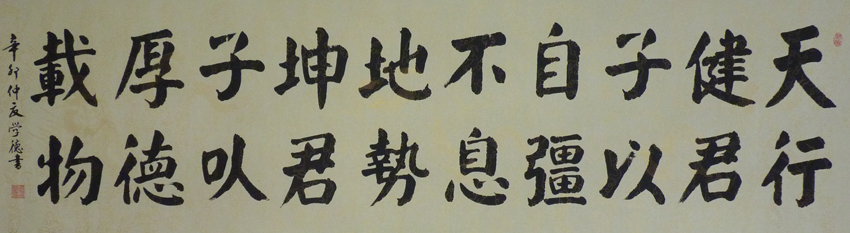 天行
健君
子以
自彊
不息
地勢
坤君
子以
厚德
載物
辛卯仲夏学德書